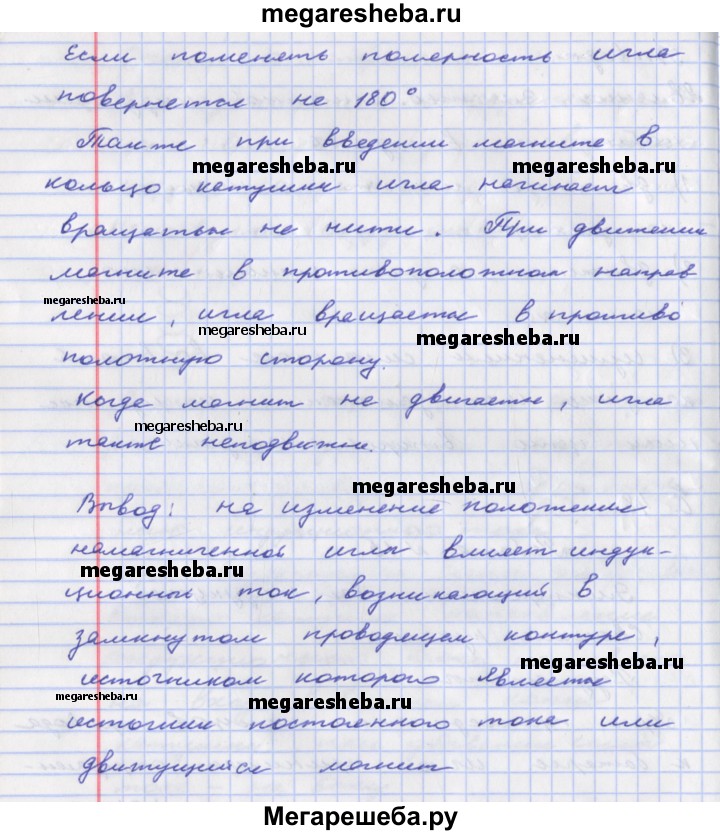 megaresheba.ru
Если поменять полярность игла
повернется на 180°
Также при введении магнита в
megaresheba.ru megaresheba.ru
кольцо катушки игла начинает
вращаться на нити. При движении
магнита в противоположном направ
megaresheba.ru
лении, игла вращается в противо
megaresheba.ru megaresheba.ru
положную сторону.
Когда магнит не двигается, игла
megaresheba.ru
также неподвижна.
megaresheba.ru
Вывод: на изменение положения
намагниченной иглы влияет индук-
megaresheba.ru
ционный ток, возникающий в
замкнутом проводящем контуре,
megaresheba.ru
источником которого является
megaresheba.ru megaresheba.ru
источник постоянного тока или
движущийся магнит
Мегарешеба.ру